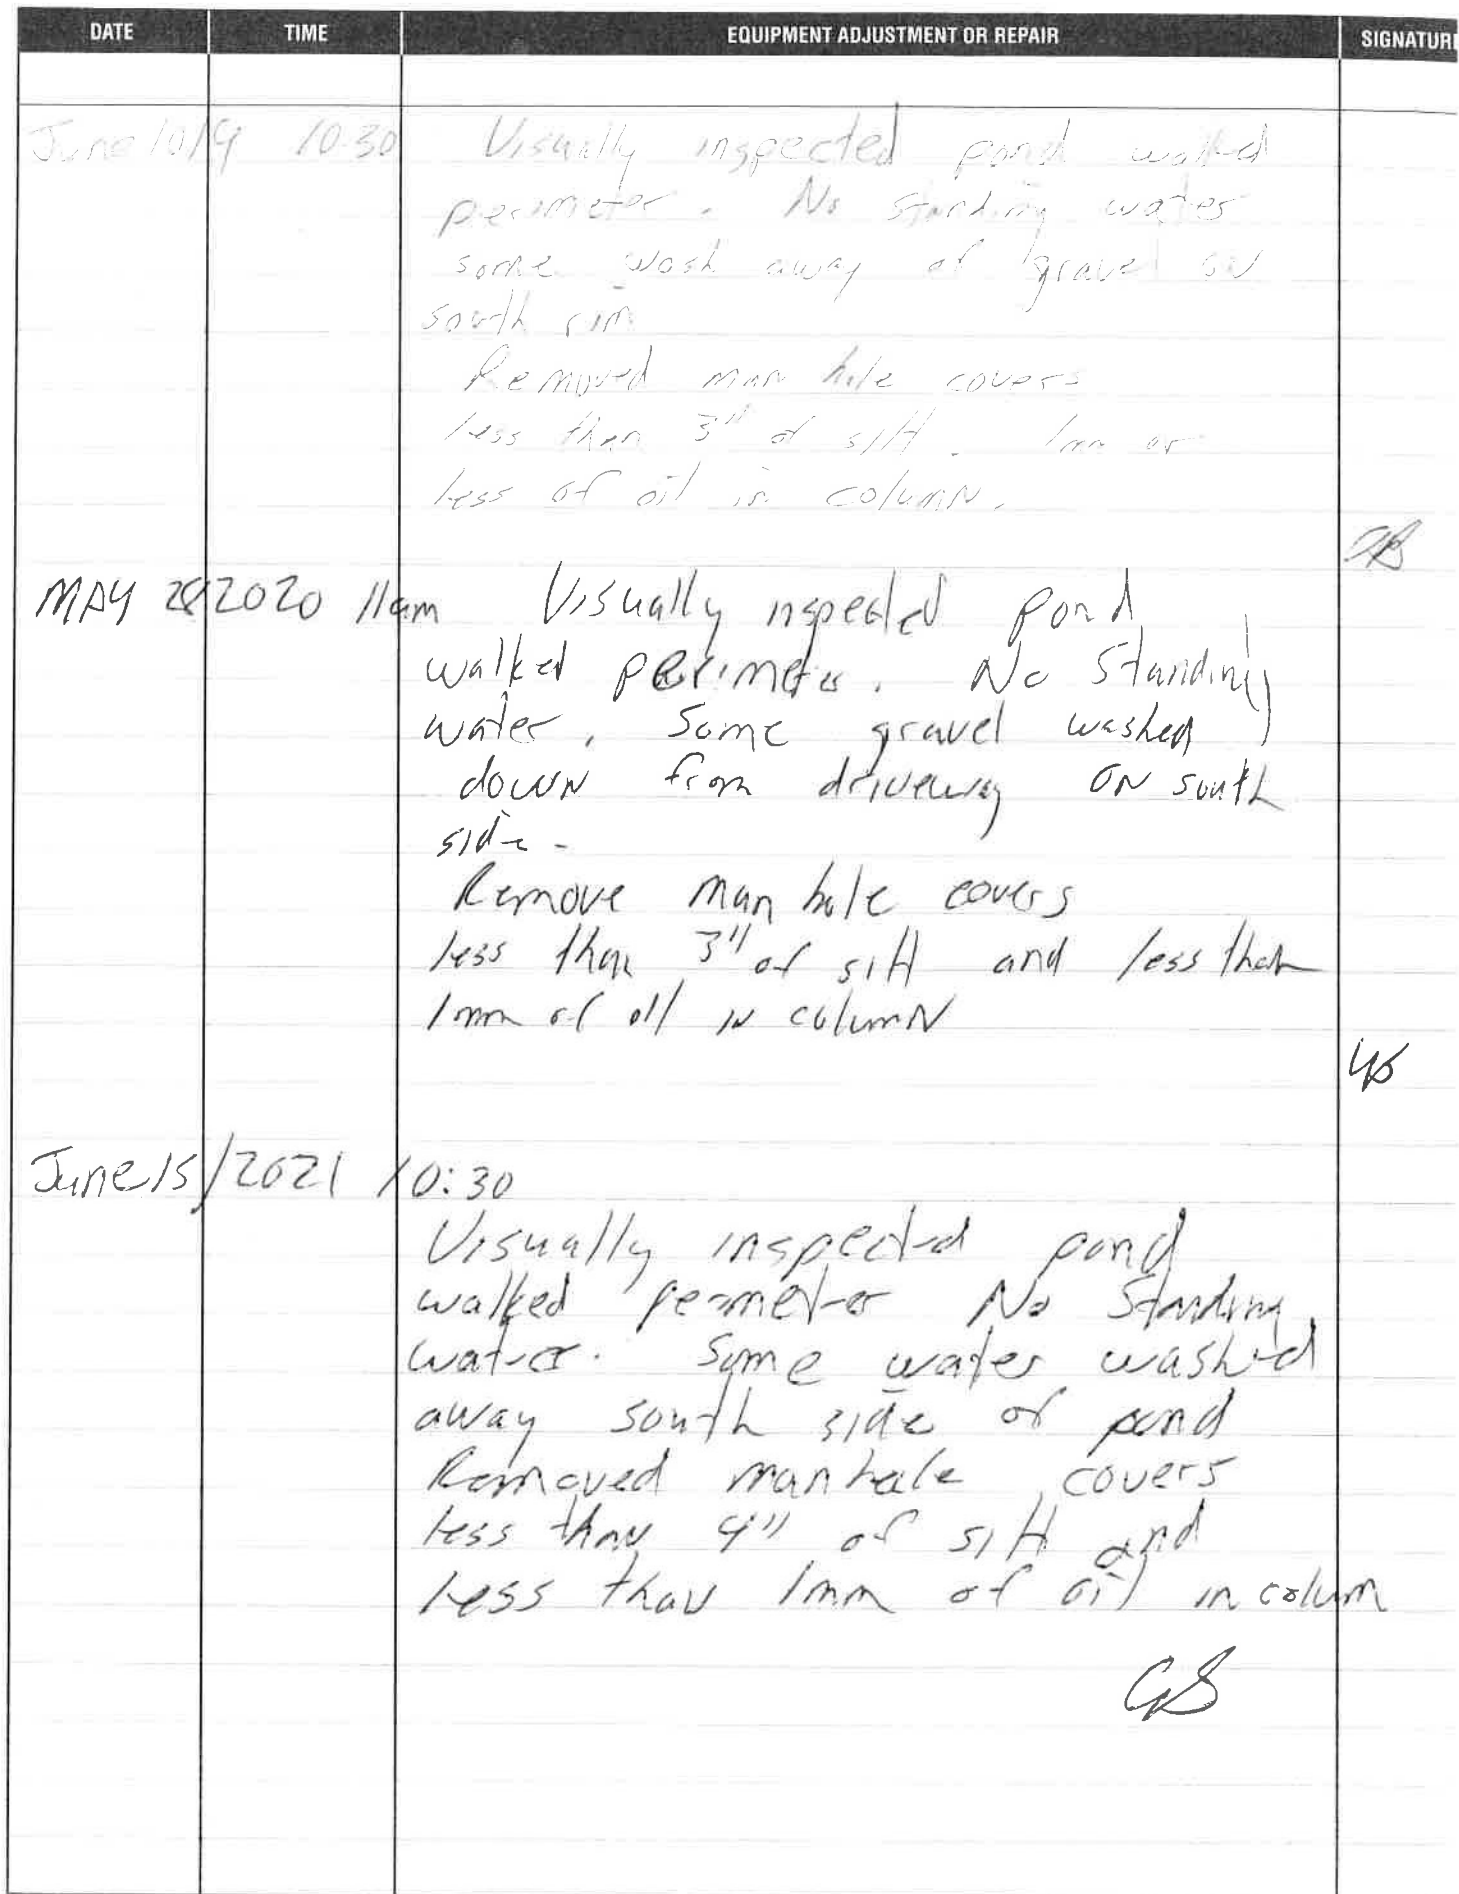 DATE TIME EQUIPMENT ADJUSTMENT OR REPAIR SIGNATURE
June 10/19 10:30 Visually inspected pond walked
perimeter. No standing water
some wash away of gravel on
south rim
Removed man hole covers
less then 3" of silt. 1mm or
less of oil in column.
GB
MAY 28 2020 11am Visually inspected pond
walked perimeter. No Standing
water. Some gravel washed
down from driveway ON south
side.
Remove man hole covers
less than 3" of silt and less than
1mm of oil in column
GB
June 15/2021 10:30
Visually inspected pond
walked perimeter No Standing
water. Some water washed
away south side of pond
Removed manhole covers
less than 4" of silt and
less than 1mm of oil in colum
GB